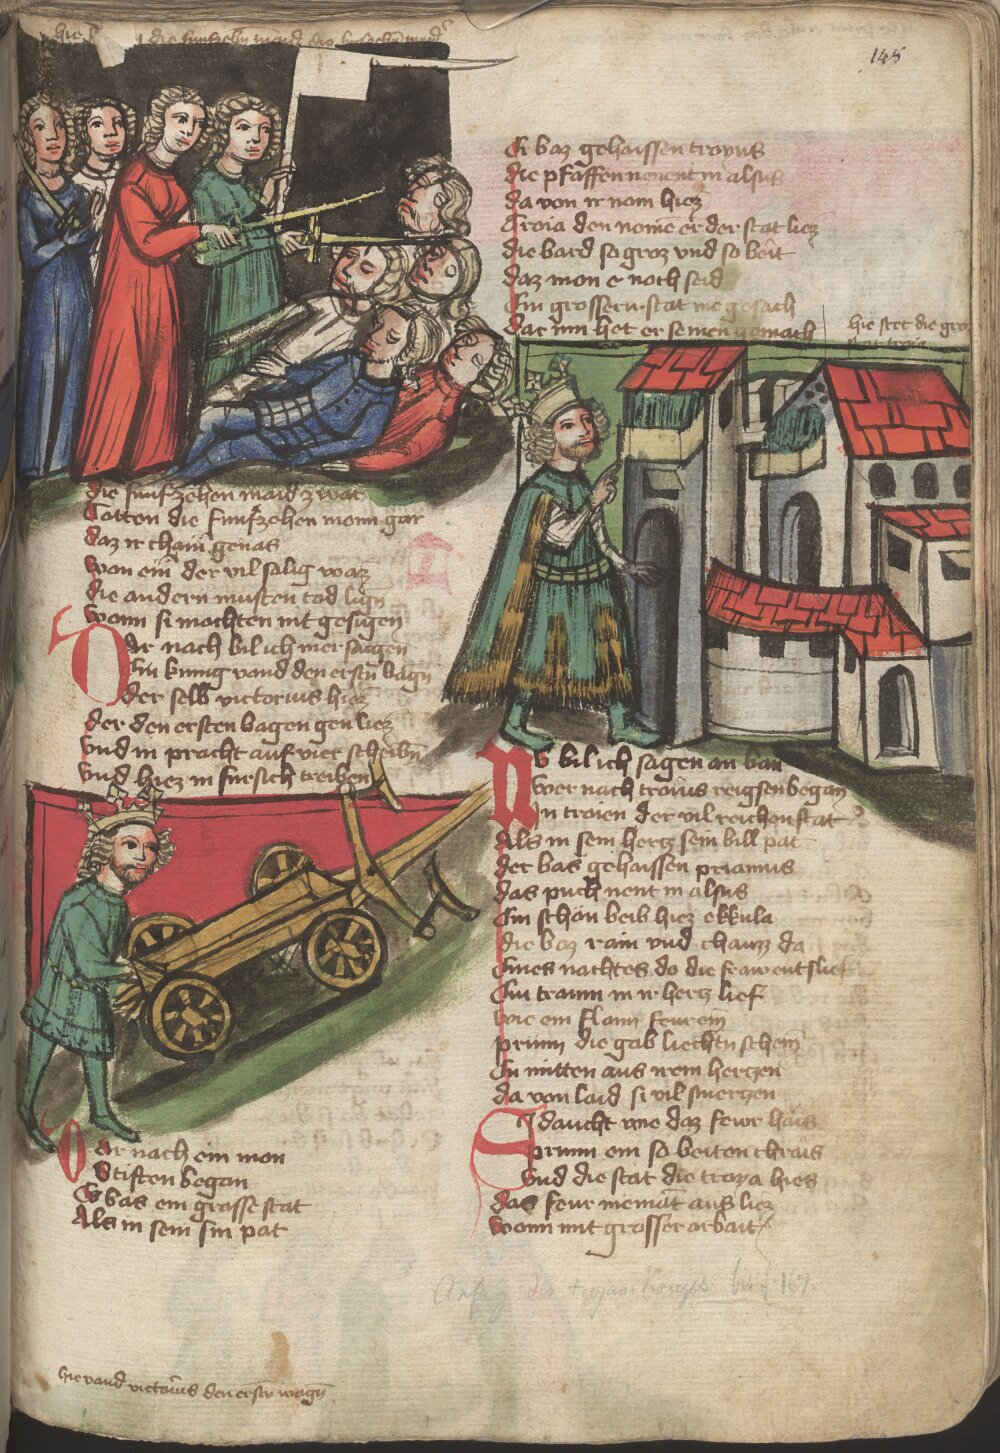 die funfzehen maid zwar
Totten die funfzehen mann gar
daz ir chainr genas
wan ein der vil salig waz
die andern musten tod lign
wann si mochten nit gesigen
Dar nach bil ich mer sagen
Ein kunig vand den ersten bagn
der selb victorius hiez
der den ersten bagen gen liez
vnd in pracht auf vier scheibn
vnd hiez in fursich treiben
Dar nach ein man
Stiften began
Es bas ein grosse stat
Als in sein sin pat
hie vand victorius den ersten wagn
145
Er baz gehaissen troyus
die pfaffen nenent in alsus
da von ir nam hiez
Troia den namen er der stat liez
die bard so groz vnd so beit
daz man e noch seid
Ein grossern stat nie gesach
Dar inn het er seinen gemach
hie stet die groz
stat troia
Nv bil ich sagen an ban
wer nach troius reigsen began
In troien der vil reichen stat
Als in sein herz sein bill pat
der bas gehaissen priamus
das puch nent in alsus
Ein schon beib hiez ekkula
die baz rain vnd cheusch da
Eines nachtes do die fraw entslief
Ein traum in ir hertz lief
wie ein flam feurein
prunn die gab liechten schein
In mitten aus irem hertzen
da von laid si vil smertzen
Si daucht wie daz feur hais
prunn ein so beiten chrais
vnd die stat die troya hies
das feur niemant aus liez
wann mit grosser arbait
Anfg des trojan. Krieges bis f. 167.